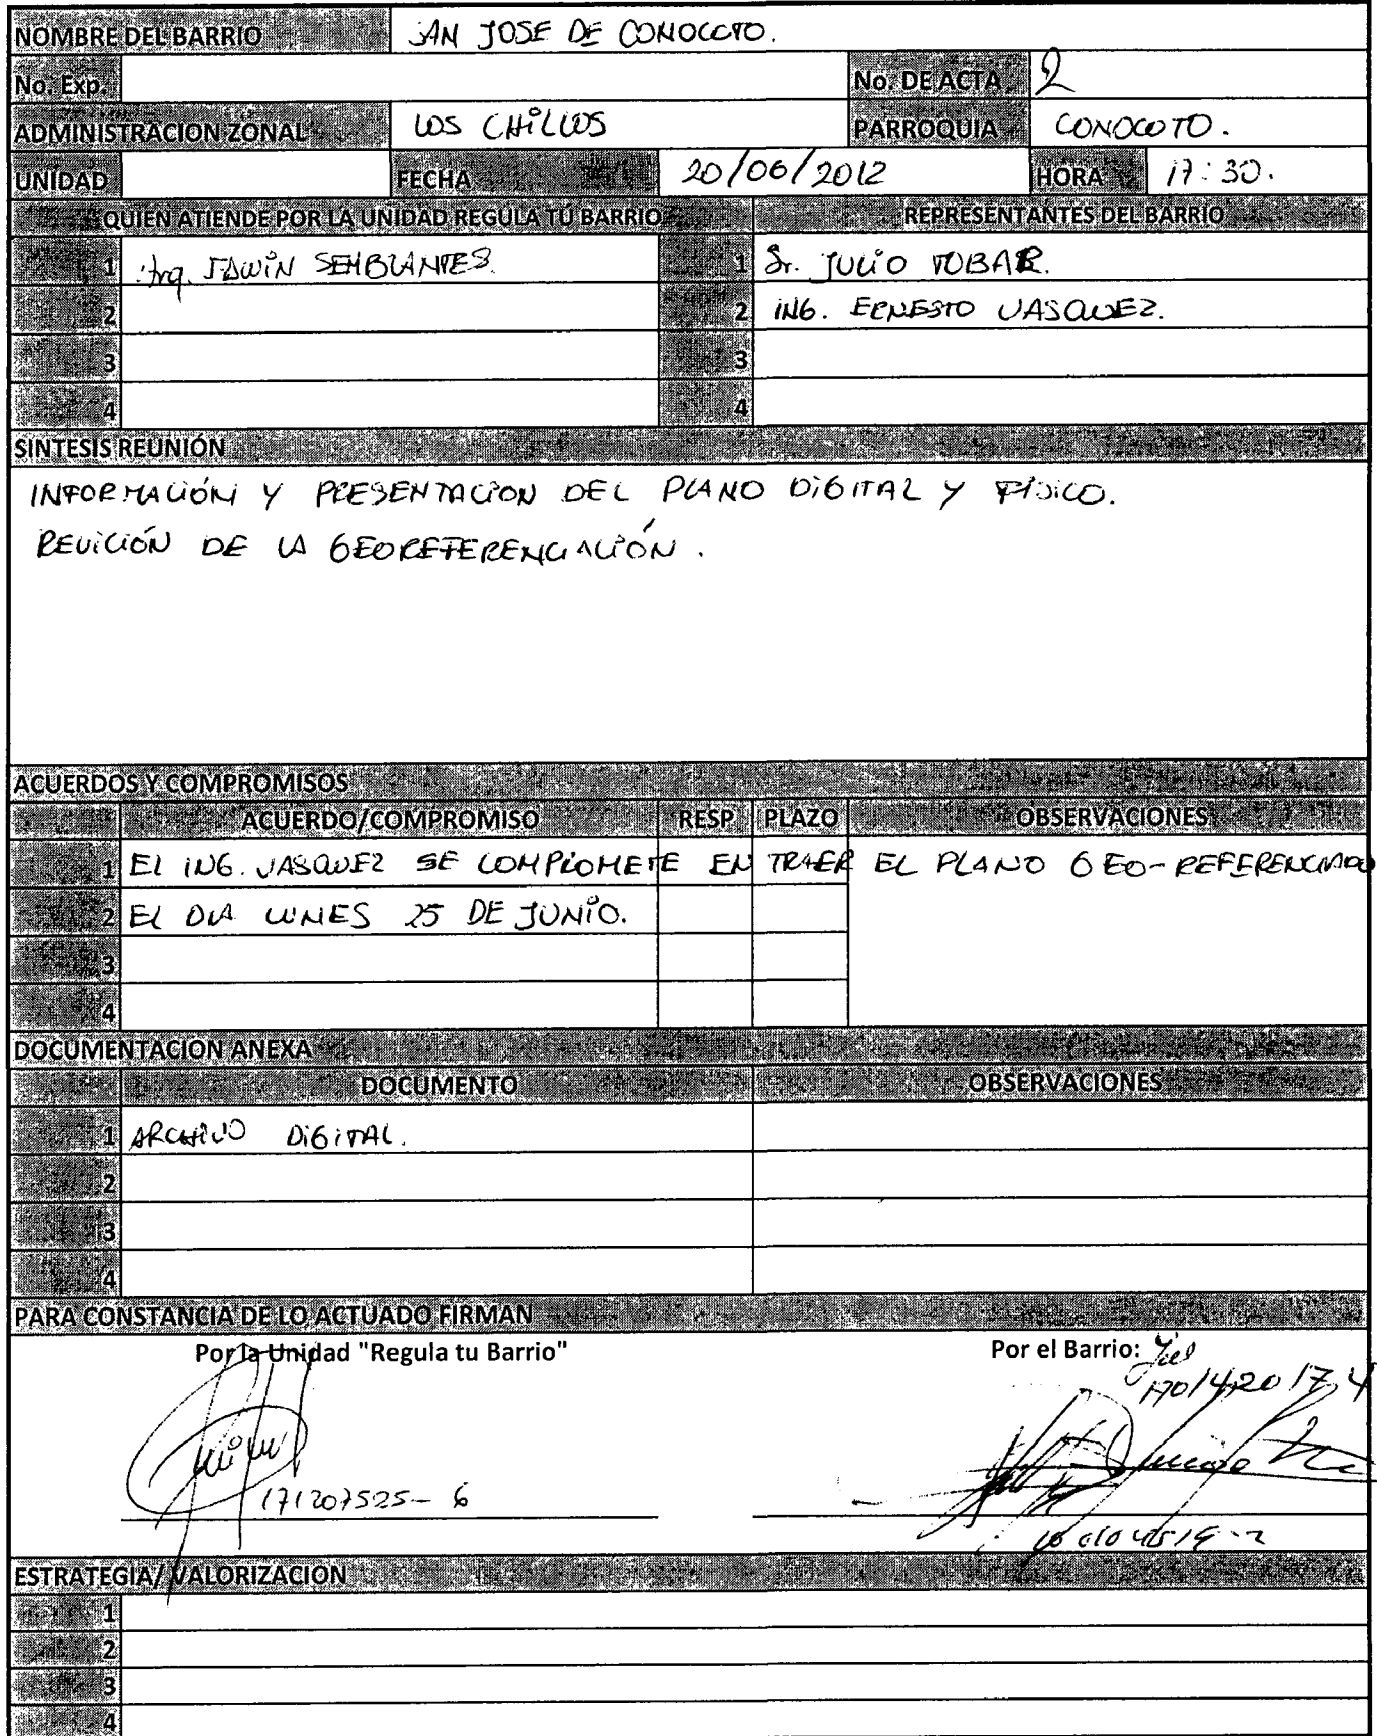 NOMBRE DEL BARRIO SAN JOSE DE CONOCOTO.
No. Exp. No. DE ACTA 2
ADMINISTRACION ZONAL LOS CHiLLOS PARROQUIA CONOCOTO.
UNIDAD FECHA 20/06/2012 HORA 17:30.
QUIEN ATIENDE POR LA UNIDAD REGULA TÚ BARRIO REPRESENTANTES DEL BARRIO
1 Arq. EDWiN SEMBLANTES. 1 Sr. JULiO TOBAR.
2 2 iNG. ERNESTO VASQUEZ.
3 3
4 4
SINTESIS REUNIÓN
INFORMACIÓN Y PRESENTACION DEL PLANO DiGITAL Y FÍSICO.
REVICIÓN DE LA GEOREFERENCIACIÓN.
ACUERDOS Y COMPROMISOS
ACUERDO/COMPROMISO RESP PLAZO OBSERVACIONES
1 El iNG. VASQUEZ SE COMPROMETE EN TRAER EL PLANO GEO-REFERENCIADO
2 El DIA LUNES 25 DE JUNiO.
3
4
DOCUMENTACION ANEXA
DOCUMENTO OBSERVACIONES
1 ARCHIVO DiGiTAL.
2
3
4
PARA CONSTANCIA DE LO ACTUADO FIRMAN
Por la Unidad "Regula tu Barrio" Por el Barrio:
170142017,4
171207525-6
ESTRATEGIA/ VALORIZACION
1
2
3
4